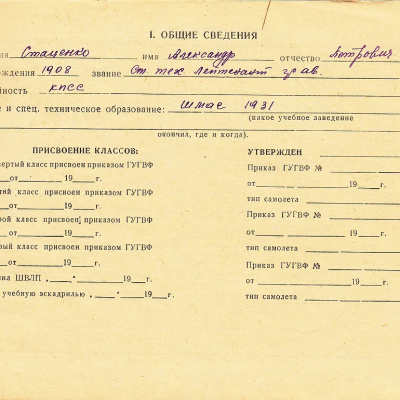 I. ОБЩИЕ СВЕДЕНИЯ
Стаценко имя Александр отчество Петрович
ождения 1908 звание Ст. тех. лейтенант
йность КПСС
е и спец. техническое образование: Шмас 1931
(какое учебное заведение
окончил, где и когда).
ПРИСВОЕНИЕ КЛАССОВ:
вертый класс присвоен приказом ГУГВФ
от 19 г.
тий класс присвоен приказом ГУГВФ
от 19 г.
рой класс присвоен приказом ГУГВФ
от 19 г.
вый класс присвоен приказом ГУГВФ
от 19 г.
чил ШВЛП „ “ 19 г.
учебную эскадрилью „ “ 19 г.
УТВЕРЖДЕН
Приказ ГУГВФ №
от 19 г.
тип самолета
Приказ ГУГВФ №
от 19 г.
тип самолета
Приказ ГУГВФ №
от 19 г.
тип самолета